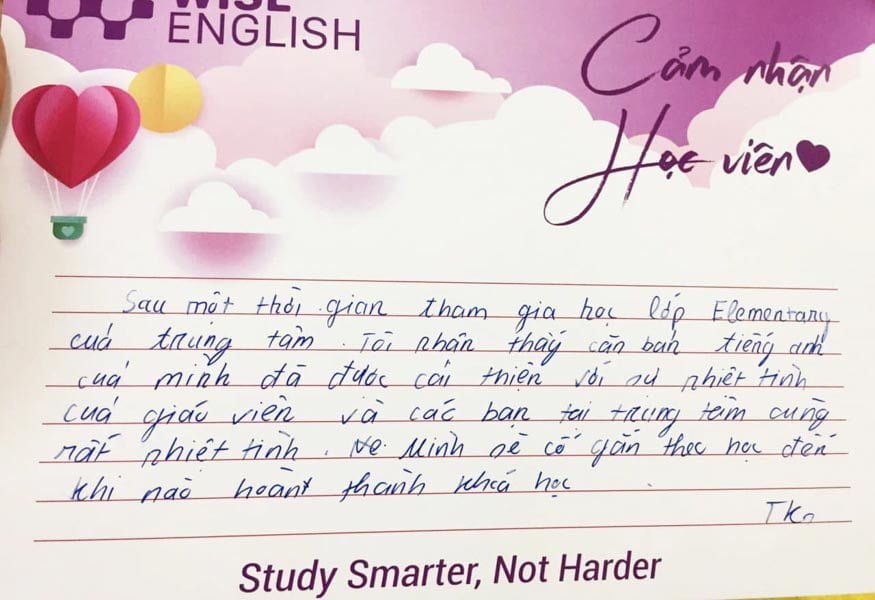 WISE
ENGLISH
Cảm nhận
Học viên
Sau một thời gian tham gia học lớp Elementary
cuả trung tâm. Tôi nhận thấy căn bản tiếng anh
cuả mình đã được cải thiện với sự nhiệt tình
cuả giáo viên và các bạn tại trung tâm cũng
rất nhiệt tình. Mình sẽ cố gắn theo học đến
khi nào hoành thành khoá học
Study Smarter, Not Harder